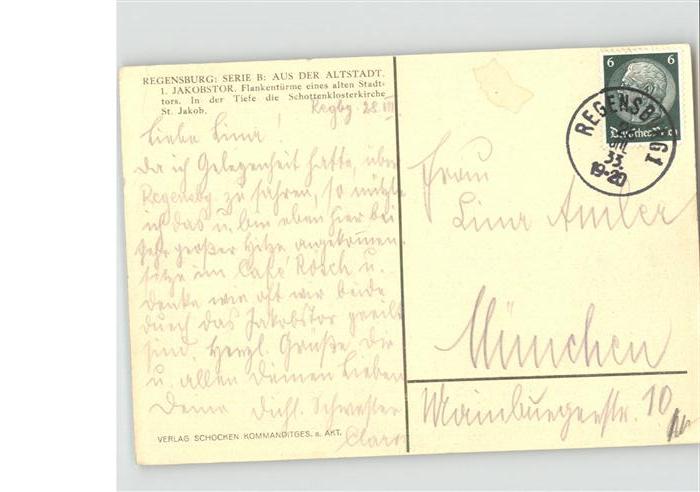 REGENSBURG: SERIE B: AUS DER ALTSTADT.
1. JAKOBSTOR. Flankentürme eines alten Stadt-
tors. In der Tiefe die Schottenklosterkirche
St. Jakob.
Regbg. 28. VII
Liebe Lina!
Da ich Gelegenheit hatte, über
Regensbg. zu fahren, so nützte
ich das u. bin eben hier bei
sehr großer Hitze angekommen.
Sitze im Café Rösch u.
denke wie oft wir beide
durch das Jakobstor geeilt
sind. Herzl. Grüße Dir
u. allen Deinen Lieben
Deine Schwester
VERLAG SCHOCKEN KOMMANDITGES. a. AKT.
6 6
Deutsches Reich
REGENSBURG 1
33.
19-20
Frau
Lina Amler
München
Mainburgerstr. 10